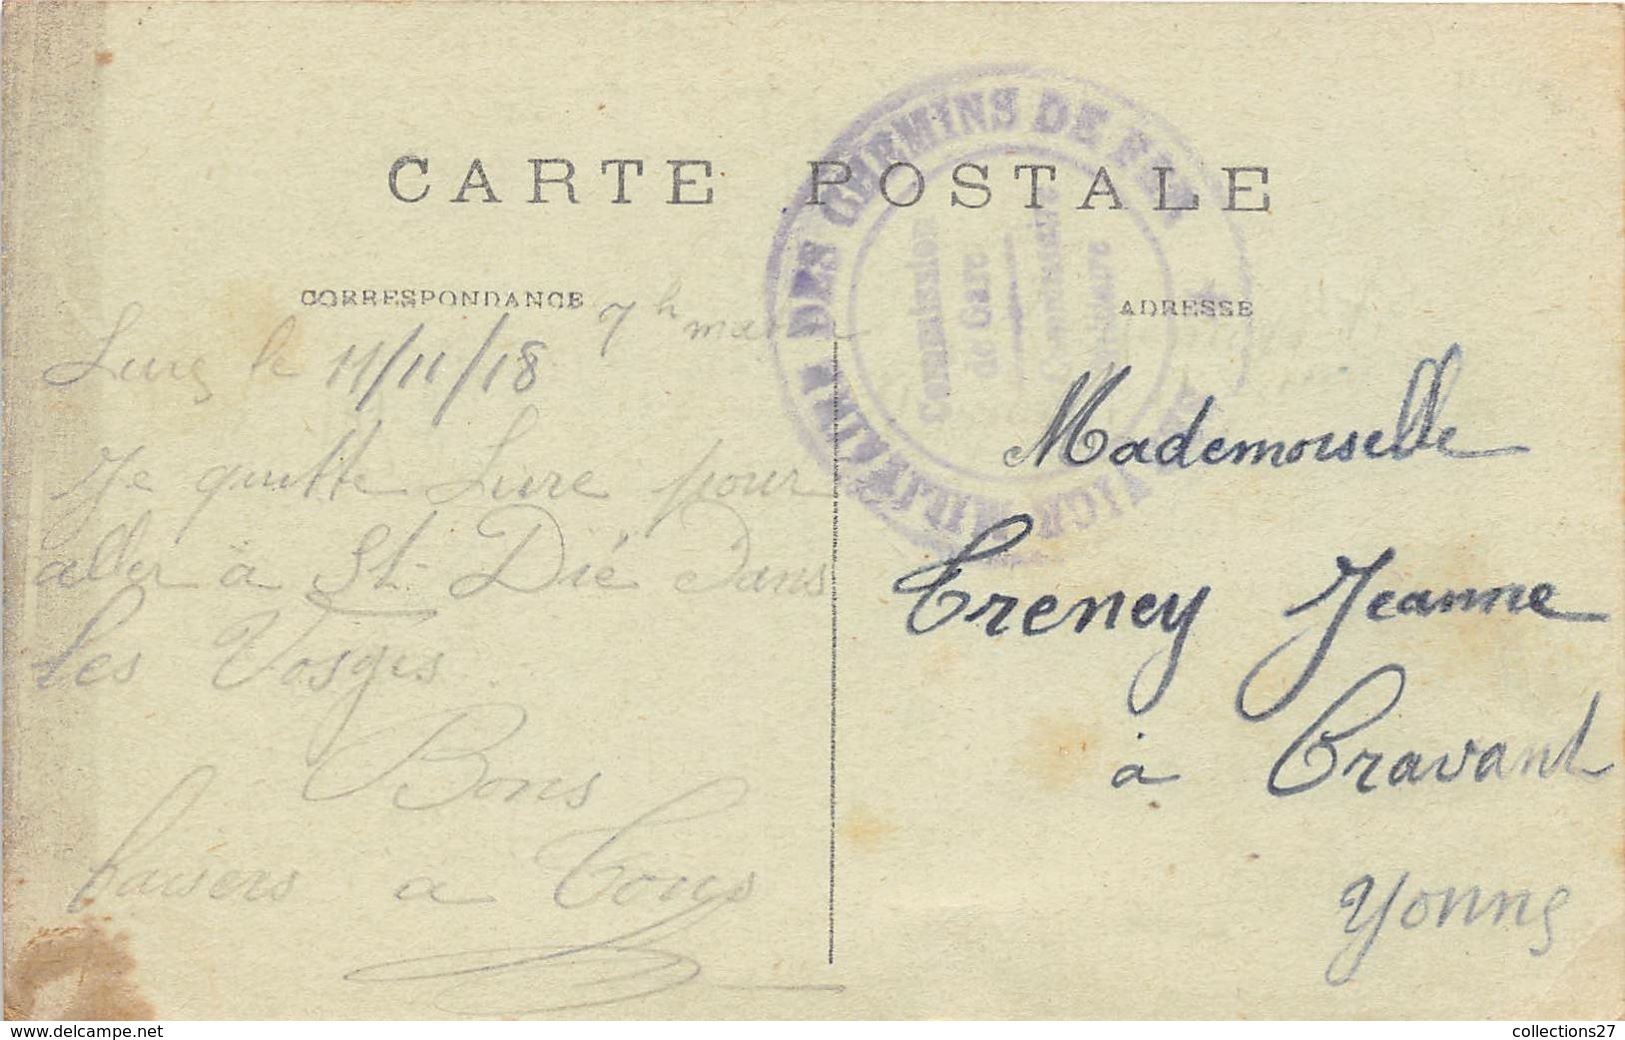 CARTE POSTALE
CORRESPONDANCE
ADRESSE
Lure le 11/11/18 7h matin
Je quitte Lure pour
aller à St-Dié dans
les Vosges.
Bons
baisers a tous
Mademoiselle
Treney Jeanne
à Cravant
Yonne
SERVICE MILITAIRE DES CHEMINS DE FER
Commission
de Gare
Commissaire
Militaire
www.delcampe.net
collections27